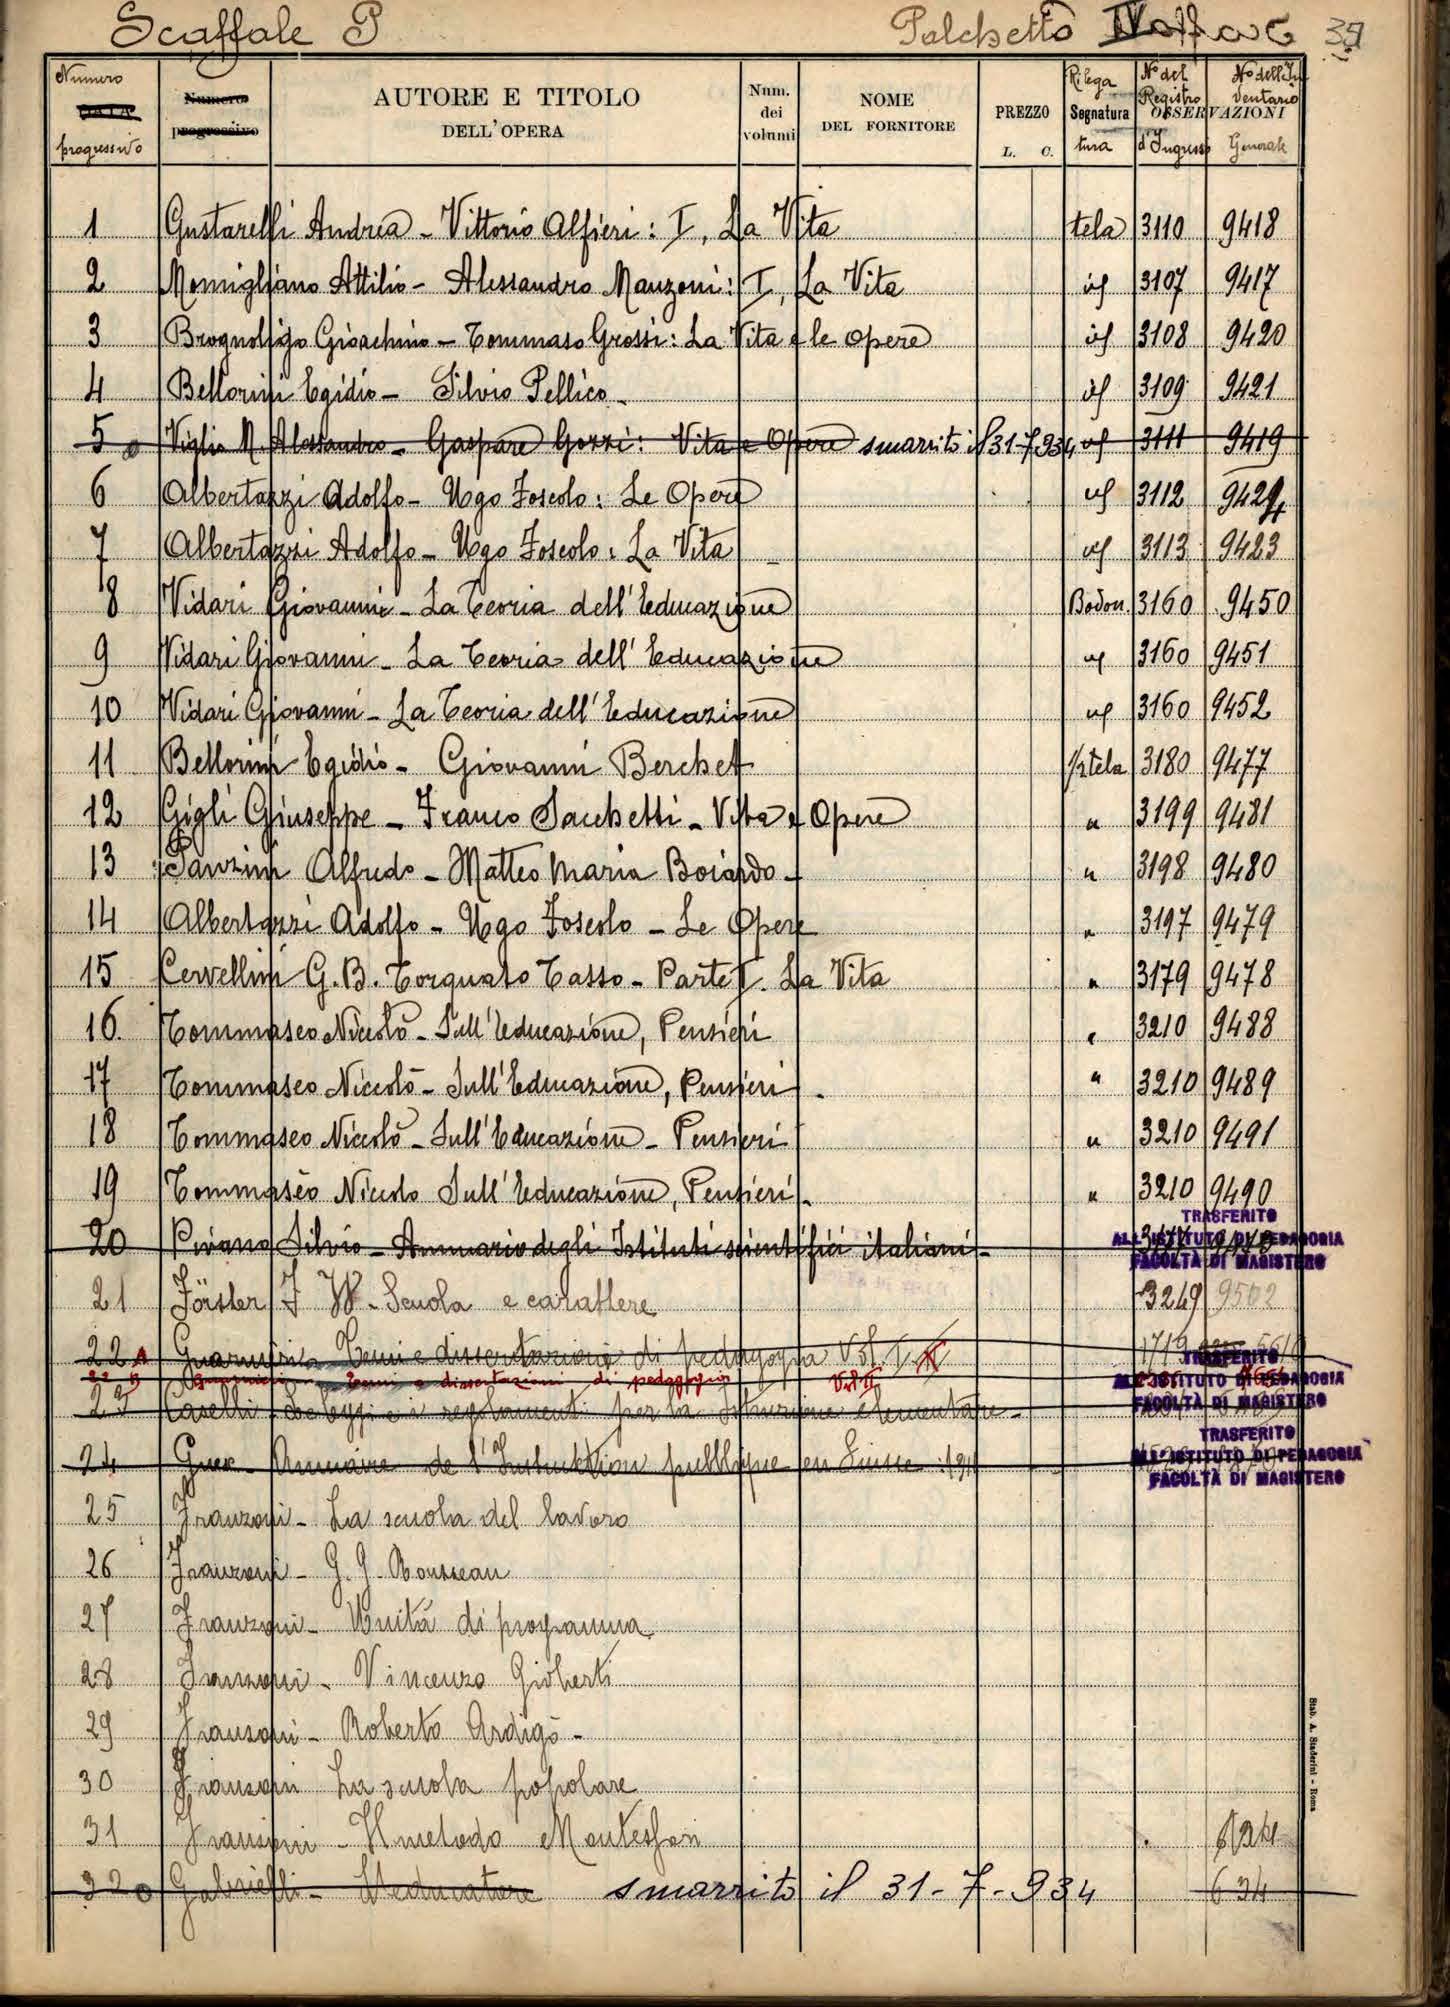 Scaffale P Palchetto IV 39
Numero DATA progressivo Numero progressivo AUTORE E TITOLO DELL'OPERA Num. dei volumi NOME DEL FORNITORE PREZZO L. C. Rilega Segnatura tura No del Registro d'Ingresso OSSERVAZIONI No dell'Inventario Generale
1 Gustarelli Andrea - Vittorio Alfieri: I, La Vita tela 3110 9418
2 Momigliano Attilio - Alessandro Manzoni: I, La Vita id 3107 9417
3 Brognoligo Gioachino - Tommaso Grossi: La Vita e le opere id 3108 9420
4 Bellorini Egidio - Silvio Pellico - id 3109 9421
5 Viglio M. Alessandro - Gaspare Gozzi: Vita e Opere smarrito il 31-7-934 id 3111 9419
6 Albertazzi Adolfo - Ugo Foscolo: Le Opere id 3112
7 Albertazzi Adolfo - Ugo Foscolo: La Vita id 3113 9423
8 Vidari Giovanni - La Teoria dell'Educazione Bodon. 3160 9450
9 Vidari Giovanni - La Teoria dell'Educazione id 3160 9451
10 Vidari Giovanni - La Teoria dell'Educazione id 3160 9452
11 Bellorini Egidio - Giovanni Berchet 1/2 tela 3180 9477
12 Gigli Giuseppe - Franco Sacchetti - Vita e Opere " 3199 9481
13 Panzini Alfredo - Matteo Maria Boiardo - " 3198 9480
14 Albertazzi Adolfo - Ugo Foscolo - Le Opere " 3197 9479
15 Cervellini G. B. Torquato Tasso - Parte I. La Vita " 3179 9478
16. Tommaseo Niccolò - Sull'Educazione, Pensieri " 3210 9488
17 Tommaseo Niccolò - Sull'Educazione, Pensieri - " 3210 9489
18 Tommaseo Niccolò - Sull'Educazione - Pensieri " 3210 9491
19 Tommaseo Niccolo Sull'Educazione, Pensieri - " 3210 9490
20 Pivano Silvio - Annuario degli Istituti scientifici italiani -
TRASFERITO
ALL'ISTITUTO DI PEDAGOGIA
FACOLTÀ DI MAGISTERO
21 Förster F W - Scuola e carattere 3249 9502
22 A Temi e dissertazioni di pedagogia Vol. I 1719
22 B Temi e dissertazioni di pedagogia Vol II
TRASFERITO
ALL'ISTITUTO DI PEDAGOGIA
FACOLTÀ DI MAGISTERO
23 Caselli - Le leggi e i regolamenti per la istruzione elementare -
24 Guex - Annuaire de l'Instruction publique en Suisse 191
TRASFERITO
ALL'ISTITUTO DI PEDAGOGIA
FACOLTÀ DI MAGISTERO
25 Franzoni - La scuola del lavoro
26 Franzoni - G. G. Rousseau
27 Franzoni - Unità di programma
28 Franzoni - Vincenzo Gioberti
29 Franzoni - Roberto Ardigò -
30 Franzoni La scuola popolare
31 Franzoni - Il metodo Montessori
32 Gabrielli - smarrito il 31-7-934 634
Stab. A. Staderini - Roma